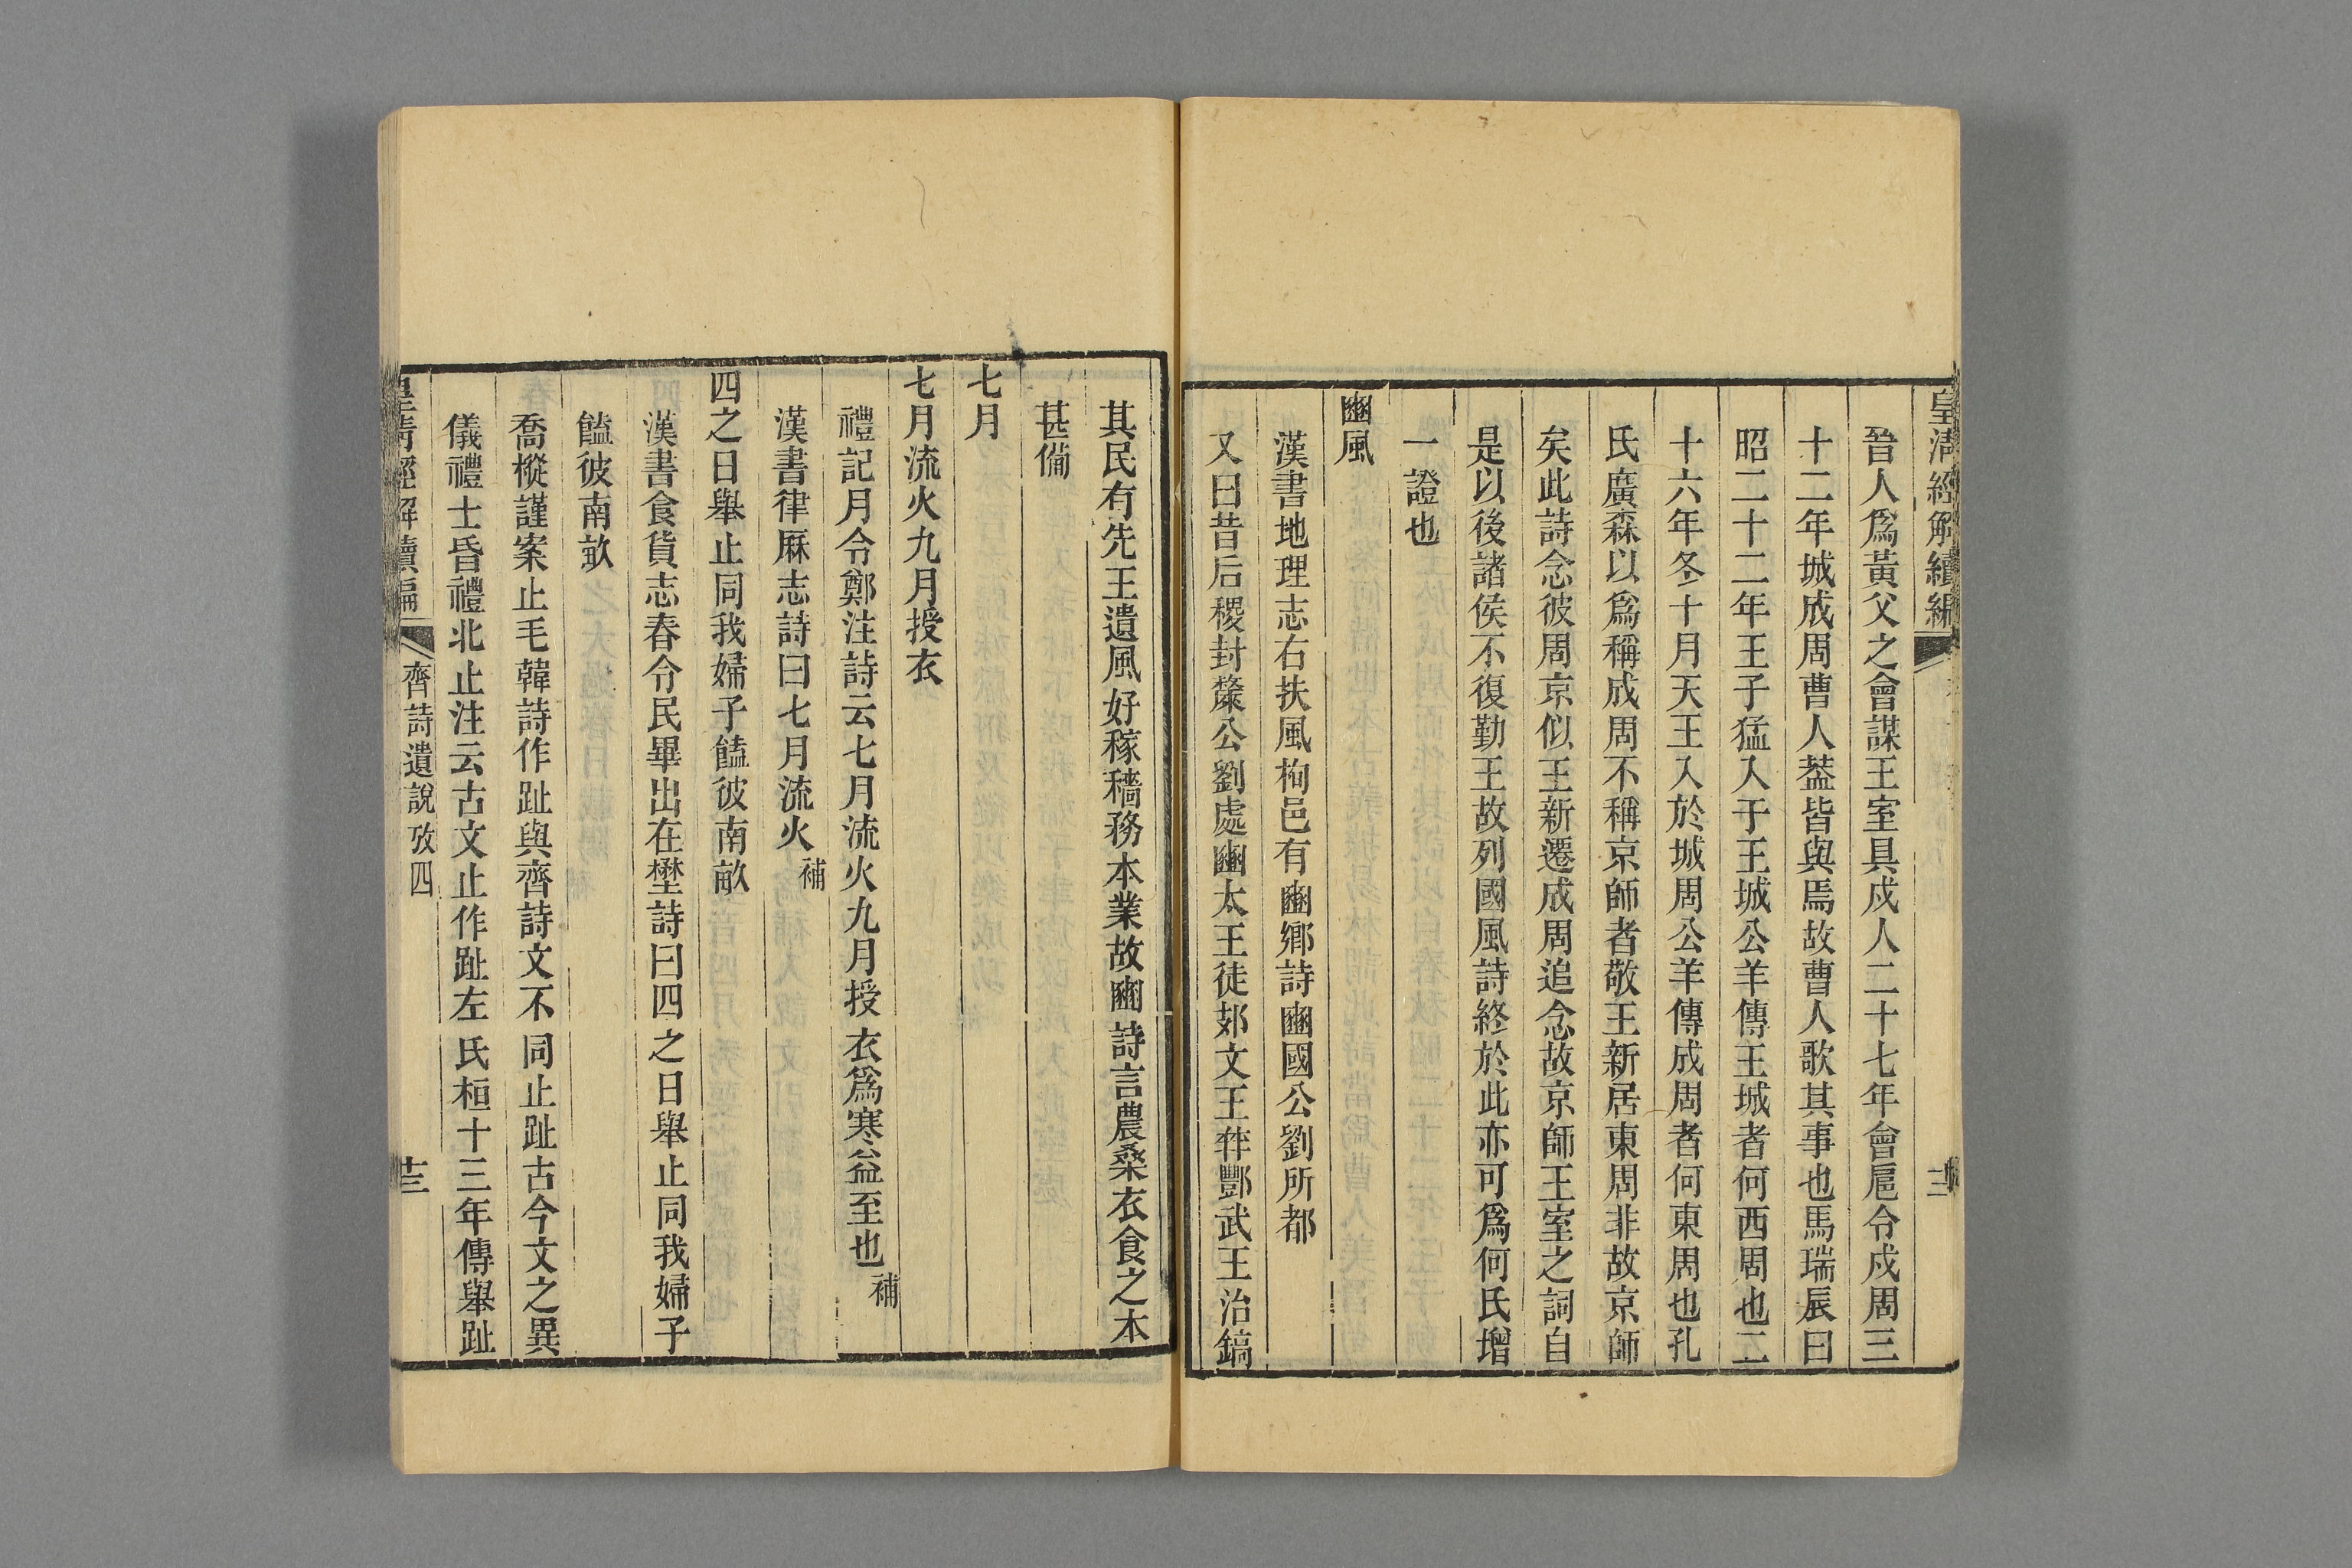 皇清經解續編
晉人爲黃父之會謀王室具戍人二十七年會扈令戍周三
十二年城成周曹人葢皆與焉故曹人歌其事也馬瑞辰曰
昭二十二年王子猛入于王城公羊傳王城者何西周也二
十六年冬十月天王入於成周公羊傳成周者何東周也孔
氏廣森以爲稱成周不稱京師者敬王新居東周非故京師
矣此詩念彼周京似王新遷成周追念故京師王室之詞自
是以後諸侯不復勤王故列國風詩終於此亦可爲何氏增
一證也
豳風
漢書地理志右扶風栒邑有豳鄉詩豳國公劉所都
又曰昔后稷封斄公劉處豳太王徙䢴文王作酆武王治鎬
其民有先王遺風好稼穡務本業故豳詩言農桑衣食之本
甚備
七月
七月流火九月授衣
禮記月令鄭注詩云七月流火九月授衣爲寒益至也補
漢書律厤志詩曰七月流火補
四之日舉止同我婦子饁彼南畝
漢書食貨志春令民畢出在壄詩曰四之日舉止同我婦子
饁彼南畝
喬樅謹案止毛韓詩作趾與齊詩文不同止趾古今文之異
儀禮士昏禮北止注云古文止作趾左氏桓十三年傳舉趾
皇清經解續編 齊詩遺說攷四 十三